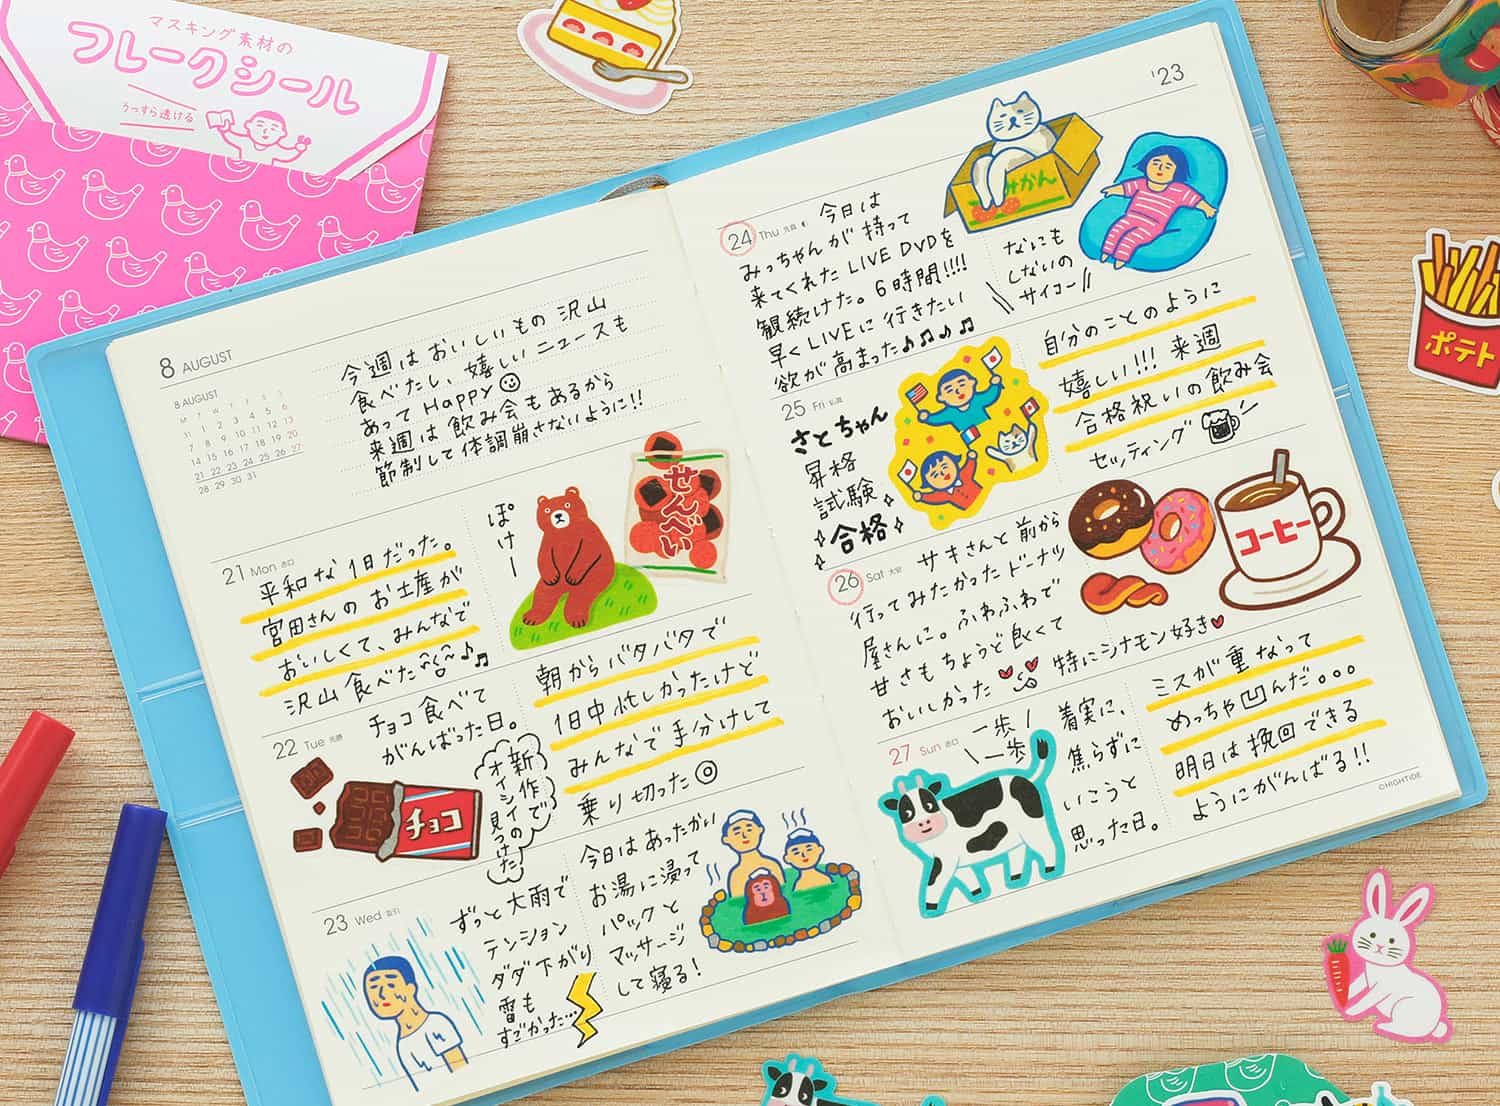 マスキング素材の
フレークシール
うっすら透ける
8 AUGUST
8 AUGUST
M T W T F S S
31 1 2 3 4 5 6
7 8 9 10 11 12 13
14 15 16 17 18 19 20
21 22 23 24 25 26 27
28 29 30 31
今週はおいしいもの沢山
食べたし、嬉しいニュースも
あってHappy
来週は飲み会もあるから
節制して体調崩さないように!!
21 Mon
平和な1日だった。
宮田さんのお土産が
おいしくて、みんなで
沢山食べた♪♫
ぽけー
せんべい
22 Tue
チョコ食べて
がんばった日。
新作で
オイシイの
見つけた
チョコ
朝からバタバタで
1日中忙しかったけど
みんなで手分けして
乗り切った◎
23 Wed
ずっと大雨で
テンション
ダダ下がり
雷も
すごかった…
今日はあったかい
お湯に浸って
パックと
マッサージ
して寝る!
'23
24 Thu
今日は
みっちゃんが持って
来てくれたLIVE DVDを
観続けた。6時間!!!!
早くLIVEに行きたい
欲が高まった♪♫♪♫
みかん
なにも
しないの
サイコー
25 Fri
さとちゃん
昇格
試験
合格
自分のことのように
嬉しい!!! 来週
合格祝いの飲み会
セッティング
26 Sat
サキさんと前から
行ってみたかったドーナツ
屋さんに。ふわふわで
甘さもちょうど良くて
おいしかった
特にシナモン好き♥
コーヒー
27 Sun
一歩
一歩
着実に、
焦らずに
いこうと
思った日。
ミスが重なって
めっちゃ凹んだ。。。
明日は挽回できる
ようにがんばる!!
©HIGHTIDE
ポテト